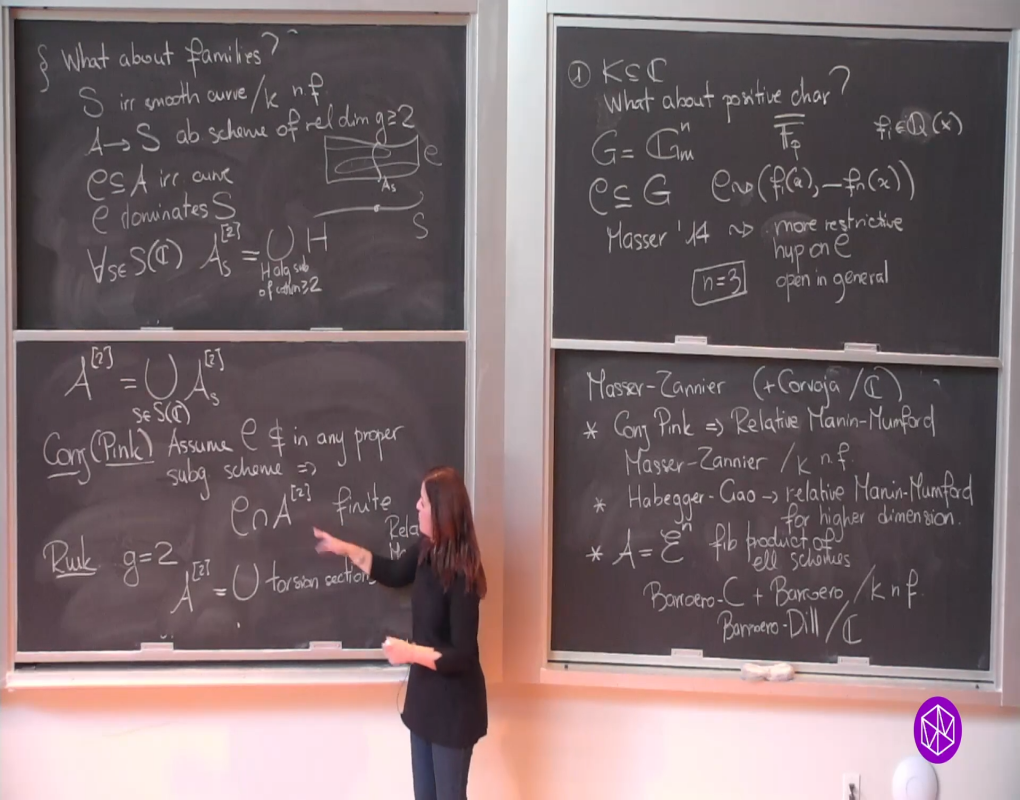 § What about families?
S irr smooth curve /k n f
A → S ab scheme of rel dim g ≥ 2
C ⊆ A irr curve
C dominates S
∀ s ∈ S(ℂ) A_s^[2] = ⋃ H
H alg sub
of codim ≥ 2
C
A_s
S
A^[2] = ⋃ A_s^[2]
s ∈ S(ℂ)
Conj (Pink) Assume C ⊄ in any proper
subg. scheme ⇒
C ∩ A^[2] finite
Rmk g = 2
A^[2] = ⋃ torsion sections
① K ⊆ ℂ
What about positive char?
G = 𝔾_m^n
𝔽_p
f_i ∈ ℚ(x)
C ⊆ G C ⇝ (f(x), — f_n(x))
Masser '14 ⇝ more restrictive
hyp on C
n = 3
open in general
Masser-Zannier (+Corvaja /ℂ)
* Conj Pink ⇒ Relative Manin-Mumford
Masser-Zannier /k n f.
* Habegger-Gao → relative Manin-Mumford
for higher dimension.
* A = ℰ^n fib product of
ell schemes
Barroero-C + Barroero /k n f.
Barroero-Dill /ℂ